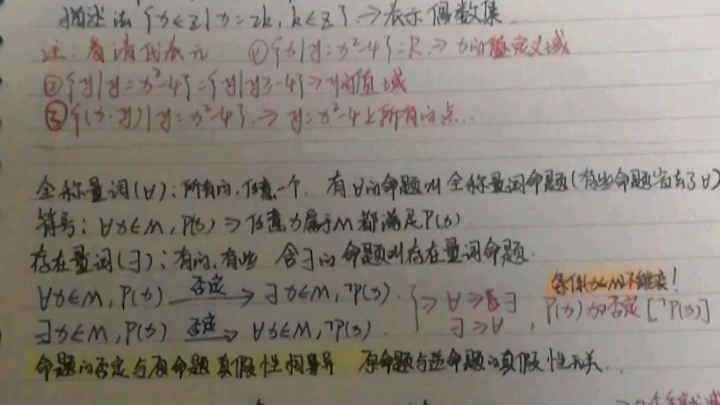 描述法 {x∈Z|x=2k,k∈Z} → 表示偶数集
注:看清代表元 ①{x|y=x²-4}=R → x的定义域
②{y|y=x²-4}={y|y≥-4} → y的值域
③{(x,y)|y=x²-4} → y=x²-4上所有的点...
全称量词(∀):所有的,任意一个. 有∀的命题叫全称量词命题(有些命题省去了∀)
符号:∀x∈M,P(x) → 任意x属于M都满足P(x).
存在量词(∃):有的,有些 含∃的命题叫存在量词命题.
∀x∈M,P(x) 否定→ ∃x∈M,¬P(x). ⇒ ∀⇒∃ 条件x∈M不能变!
∃x∈M,P(x) 否定→ ∀x∈M,¬P(x). ∃⇒∀, P(x)的否定[¬P(x)]
命题的否定与原命题真假性相异 原命题与逆命题的真假性无关.